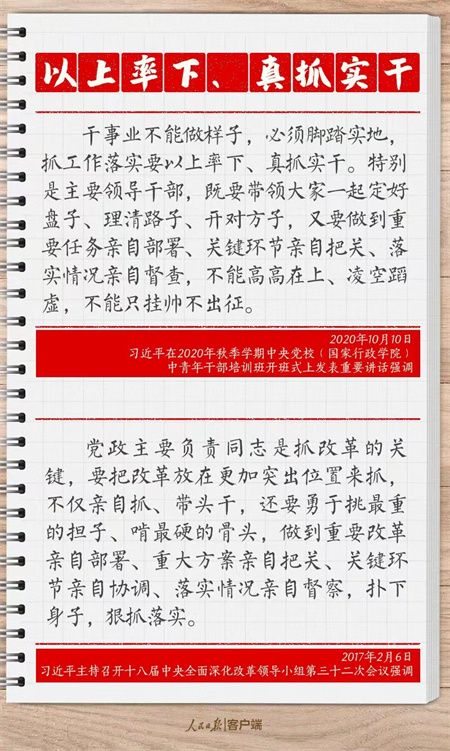 以上率下、真抓实干
干事业不能做样子，必须脚踏实地，
抓工作落实要以上率下、真抓实干。特别
是主要领导干部，既要带领大家一起定好
盘子、理清路子、开对方子，又要做到重
要任务亲自部署、关键环节亲自把关、落
实情况亲自督查，不能高高在上、凌空蹈
虚，不能只挂帅不出征。
2020年10月10日
习近平在2020年秋季学期中央党校（国家行政学院）
中青年干部培训班开班式上发表重要讲话强调
党政主要负责同志是抓改革的关
键，要把改革放在更加突出位置来抓，
不仅亲自抓、带头干，还要勇于挑最重
的担子、啃最硬的骨头，做到重要改革
亲自部署、重大方案亲自把关、关键环
节亲自协调、落实情况亲自督察，扑下
身子，狠抓落实。
2017年2月6日
习近平主持召开十八届中央全面深化改革领导小组第三十二次会议强调
人民日报|客户端